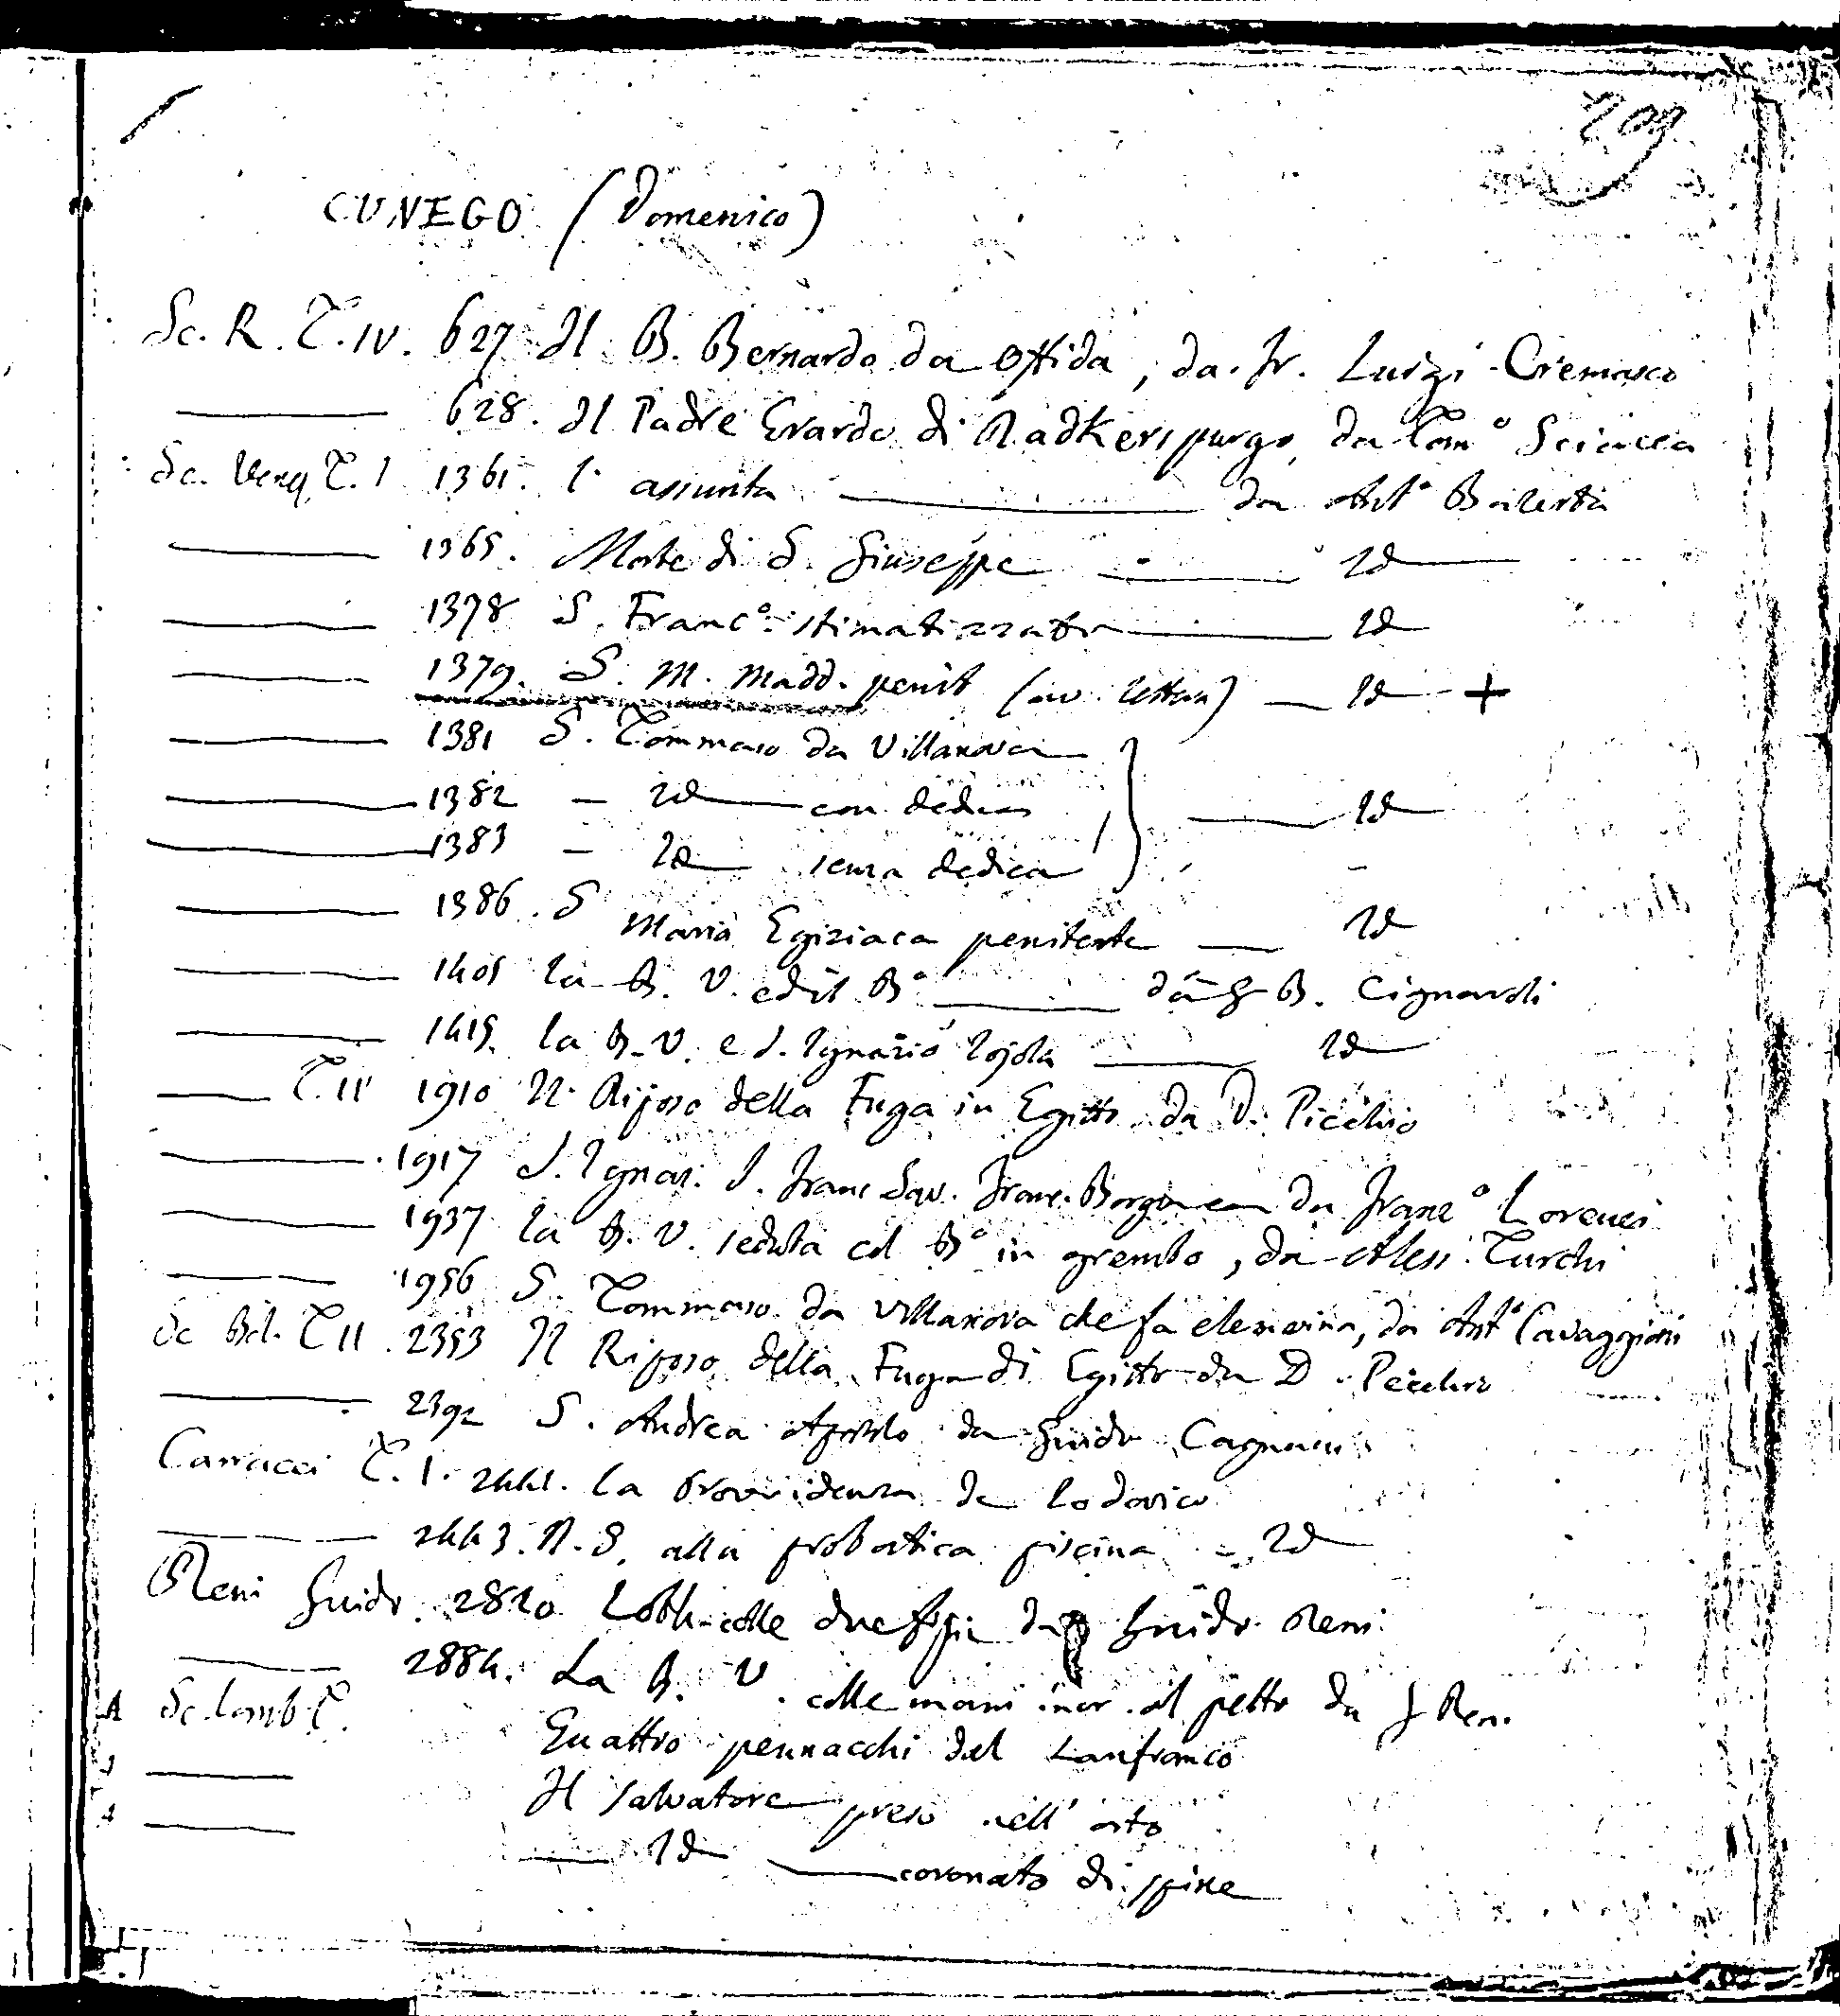 209
CUNEGO (Domenico)
Sc. R. T. IV. 627 Il B. Bernardo da Offida, da Fr. Luigi Cremasco
628. Il Padre Erardo di Radkerspurgo, da Tom.º Sciacca
Sc. Ven. T. I 1361. l'assunta da Antº Balestra
1365. Morte di S. Giuseppe Id
1378 S. Franc.º stimatizzato Id
1379. S. M. Madd. penit (av. lettera) Id +
1381 S. Tommaso da Villanova
1382 - Id con dedica Id
1383 - Id senza dedica
1386. S Maria Egiziaca penitente Id
1405 la B. V. ed il Bº da G B. Cignaroli
1415. la B. V. e S. Ignazio Lojola Id
T. II 1910 Il Riposo della Fuga in Egitto da D. Picchio
1917 S. Ignaz. S. Franc Sav. Franc. Borgia da Franc º Lorenzi
1937 la B. V. seduta col Bº in grembo, da Aless. Turchi
1956 S. Tommaso da Villanova che fa elemosina, da Antº Cavaggioni
Sc Bol. T II. 2353 Il Riposo della Fuga di Egitto da D. Pecchio
2392 S. Andrea Apostolo da Guido Cagnacci
Carracci T. I. 2441. la Provvidenza da Lodovico
2443. N. S. alla probatica piscina - Id
Reni Guido. 2820 Loth colle due figlie da Guido Reni
2884. La B. V. colle mani incr. al petto da G Reni
4 Sc. Lomb. T. Quattro pennacchi del Lanfranco
Il Salvatore preso nell'orto
Id coronato di spine